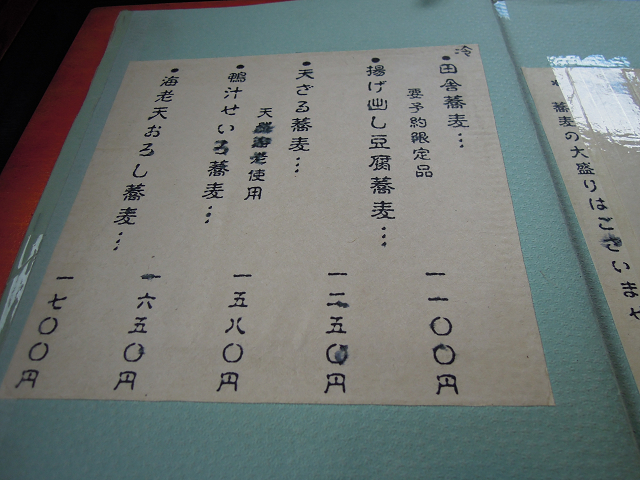 冷
田舎蕎麦…
要予約限定品
一一〇〇円
揚げ出し豆腐蕎麦…
一二五〇円
天ざる蕎麦…
天然海老使用
一五八〇円
鴨汁せいろ蕎麦…
一六五〇円
海老天おろし蕎麦…
一七〇〇円
蕎麦の大盛りはございませ